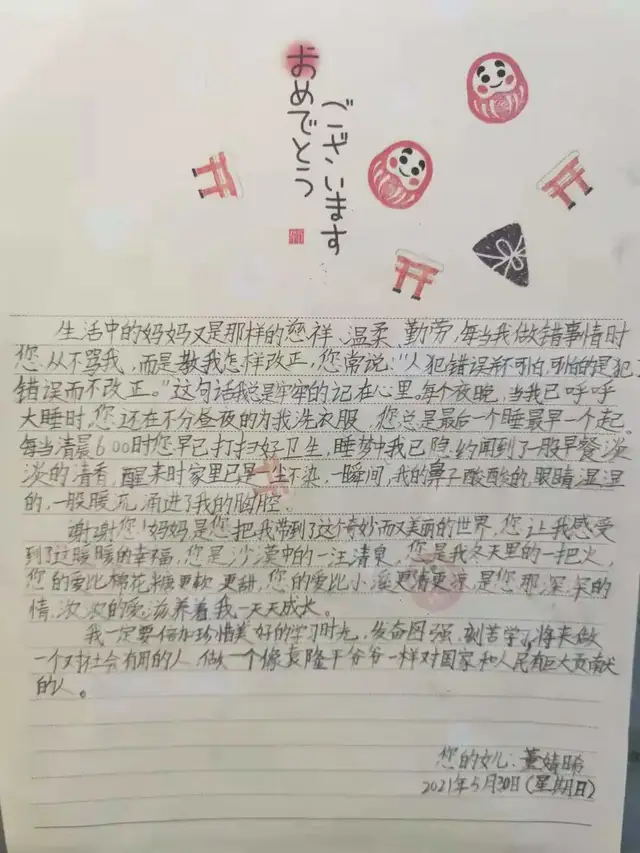 おめでとう
ございます
生活中的妈妈又是那样的慈祥、温柔、勤劳,每当我做错事情时
您从不骂我,而是教我怎样改正,您常说:"人犯错误并不可怕,可怕的是犯了
错误而不改正。"这句话我总是牢牢的记在心里。每个夜晚,当我已呼呼
大睡时,您还在不分昼夜的为我洗衣服,您总是最后一个睡最早一个起。
每当清晨6:00时您早已打扫好卫生,睡梦中我已隐约闻到了一股早餐淡
淡的清香,醒来时家里已是一尘不染,一瞬间,我的鼻子酸酸的,眼睛湿湿
的,一股暖流涌进了我的胸腔。
谢谢您!妈妈是您把我带到了这个奇妙而又美丽的世界,您让我感受
到了这暖暖的幸福,您是沙漠中的一汪清泉,您是我冬天里的一把火,
您的爱比棉花糖更软更甜,您的爱比小溪更清更凉,是您那深深的
情,浓浓的爱滋养着我一天天成长。
我一定要倍加珍惜美好的学习时光,发奋图强,刻苦学习,将来做
一个对社会有用的人,做一个像袁隆平爷爷一样对国家和人民有巨大贡献
的人。
您的女儿:董婧
2021年5月30日(星期日)